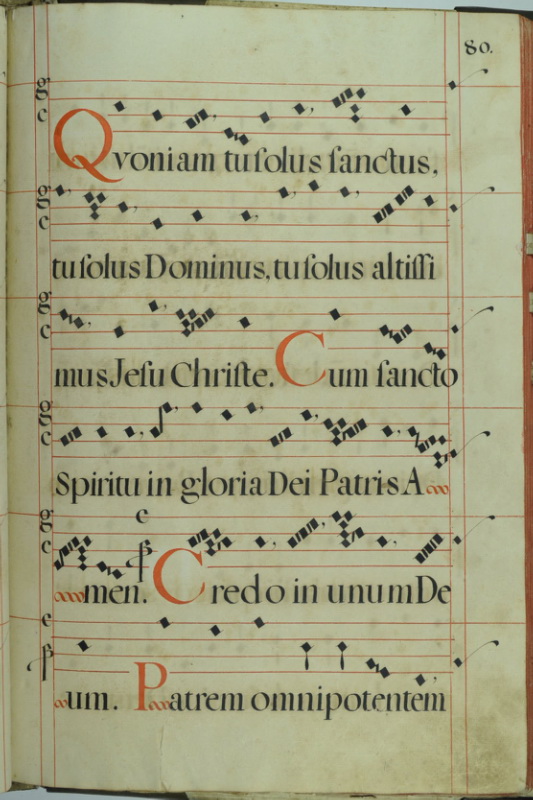 80.
g
c
Quoniam tu ſolus ſanctus,
g
c
tu ſolus Dominus, tu ſolus altiſſi
g
c
mus Jeſu Chriſte. Cum ſancto
g
c
Spiritu in gloria Dei Patris A
g
c
e
men. Credo in unum De
e
um. Patrem omnipotentem